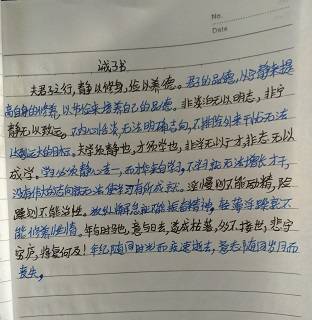 No.
Date
诫子书
夫君子之行，静以修身，俭以养德。君子的品德，以宁静来提
高自身的修养，以节俭来培养自己的品德。非淡泊无以明志，非宁
静无以致远。不内心恬淡无法明确志向，不排除外来干扰无法
达到远大的目标。夫学须静也，才须学也，非学无以广才，非志无以
成学。学习必须静心专一，而才干来自学习，不学习无法增长才干，
没有远大的志向就无法使学习有所成就。淫慢则不能励精，险
躁则不能治性。放纵懈怠就不能振奋精神，轻薄浮躁就不
能修养性情。年与时驰，意与日去，遂成枯落，多不接世，悲守
穷庐，将复何及！年纪随同时光而疾速逝去，意志随同岁月而
丧失，